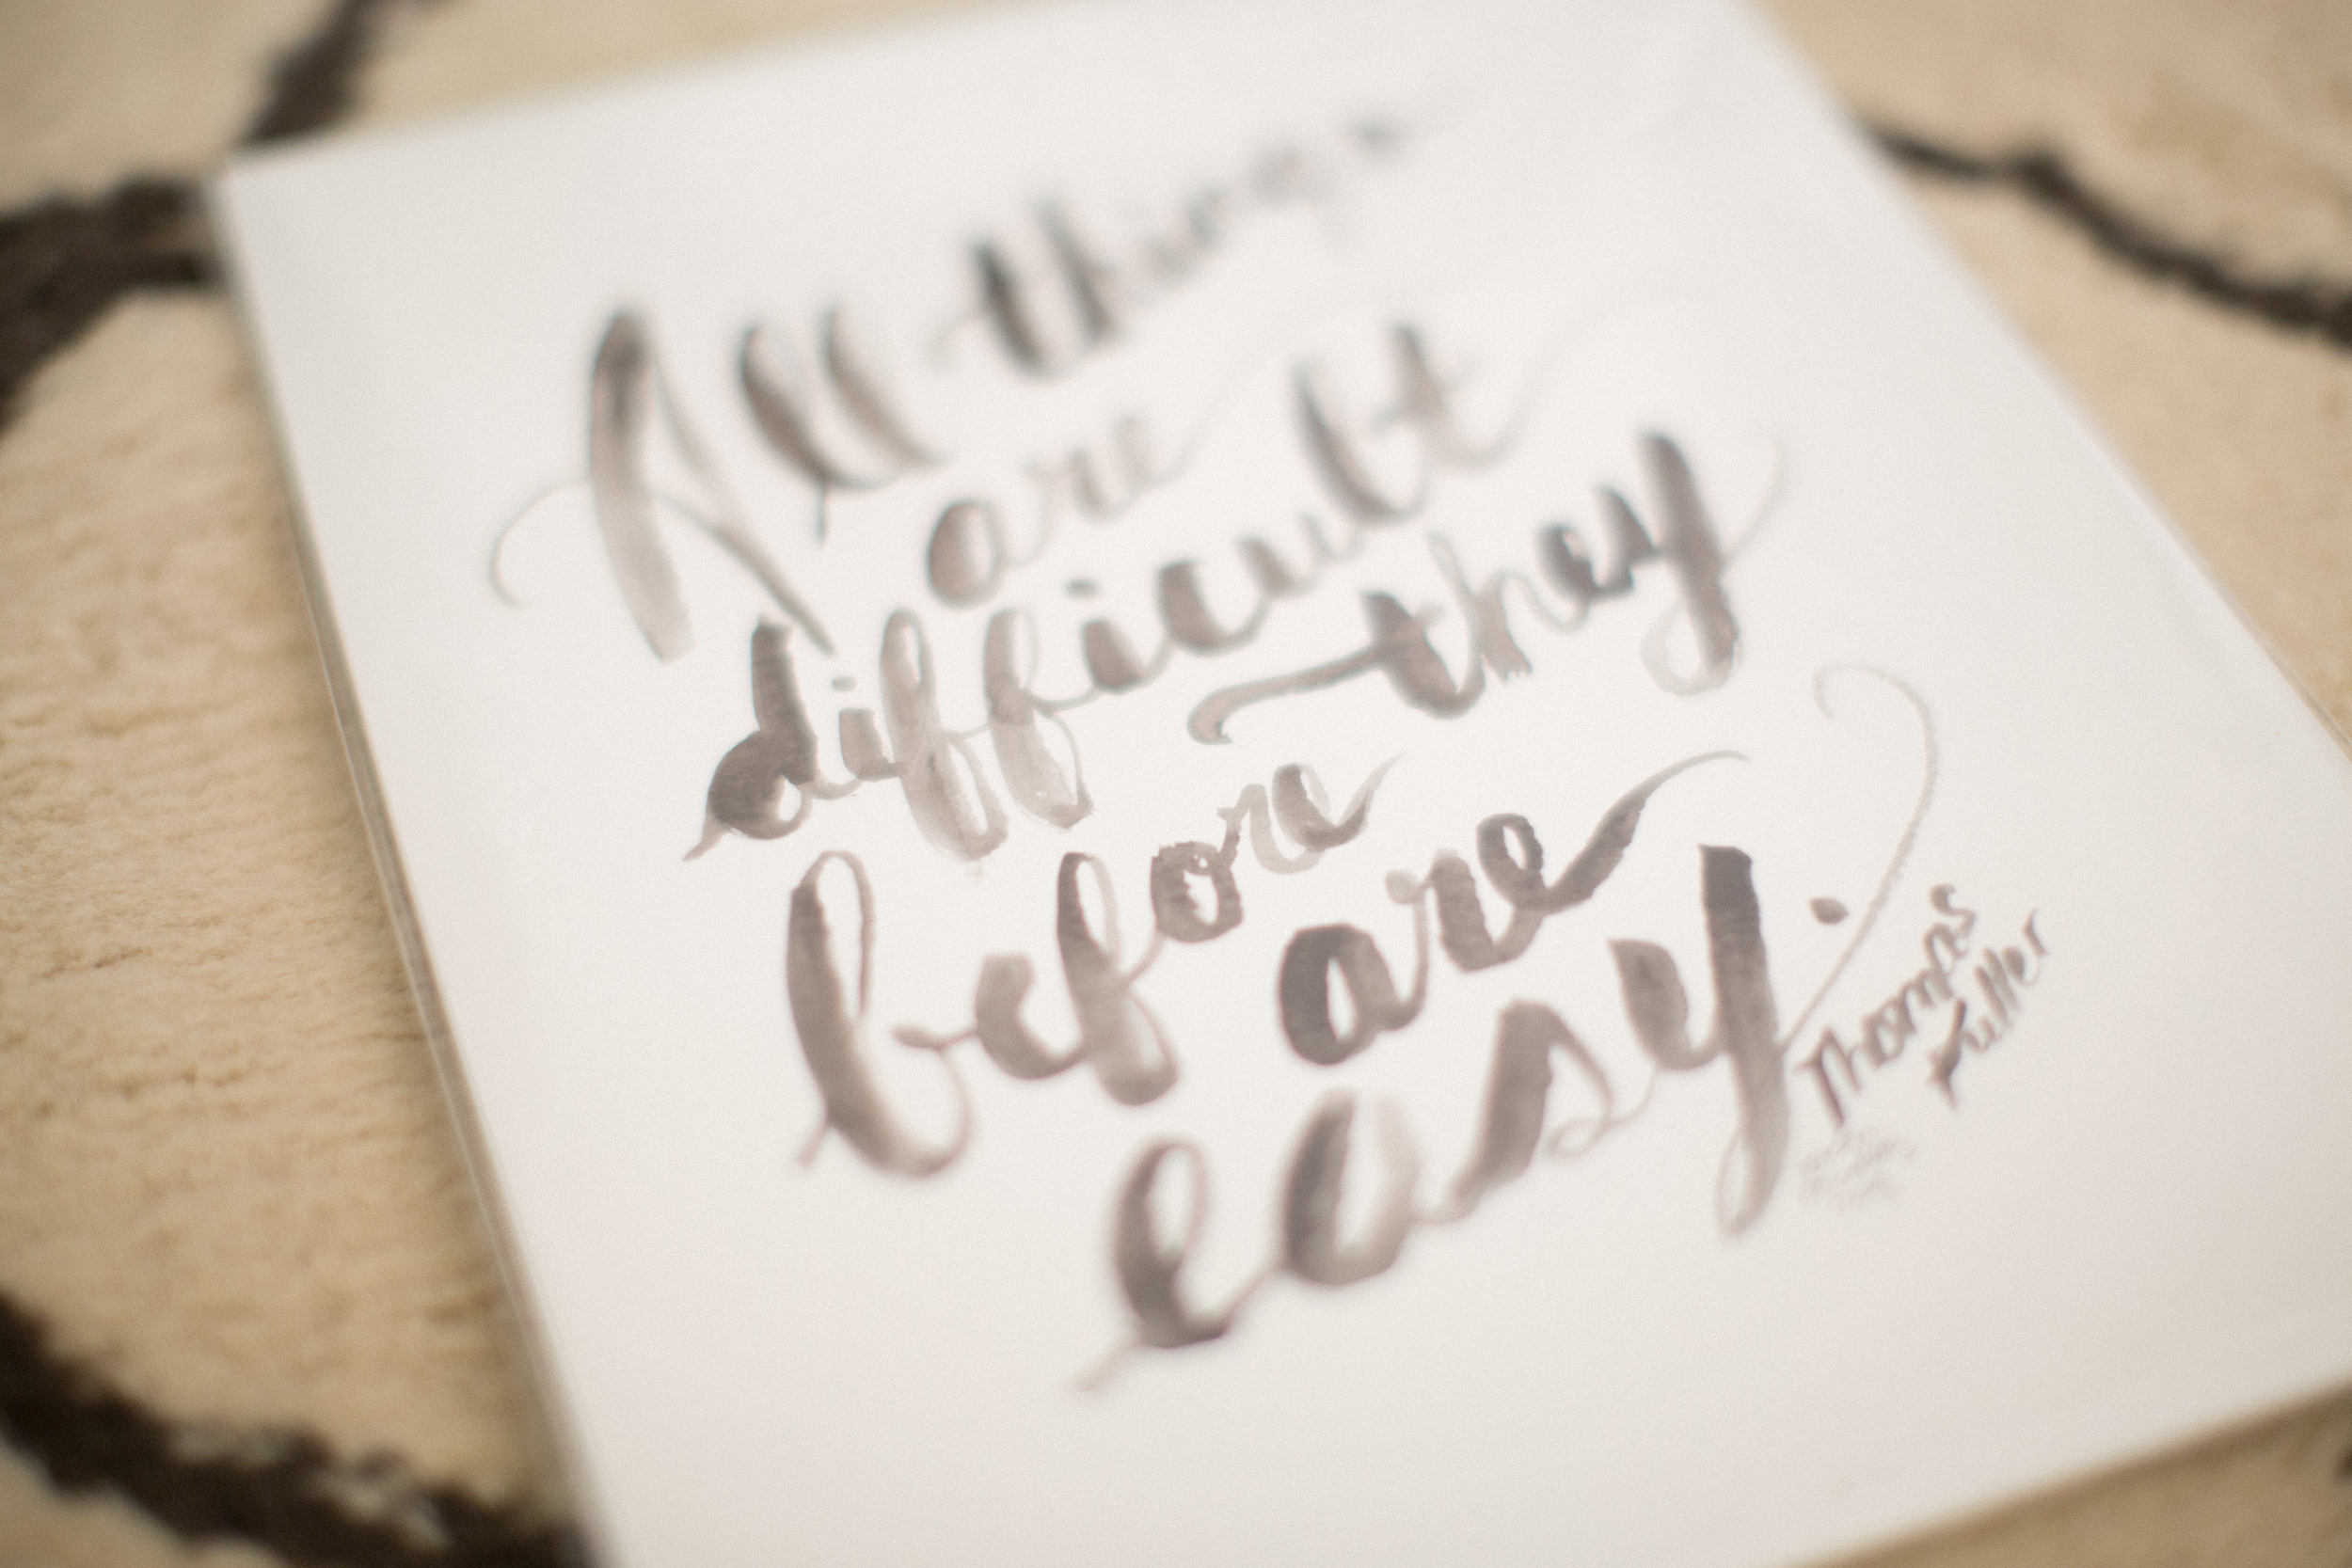 All things
are
difficult
before they
are
easy.
Thomas
Fuller